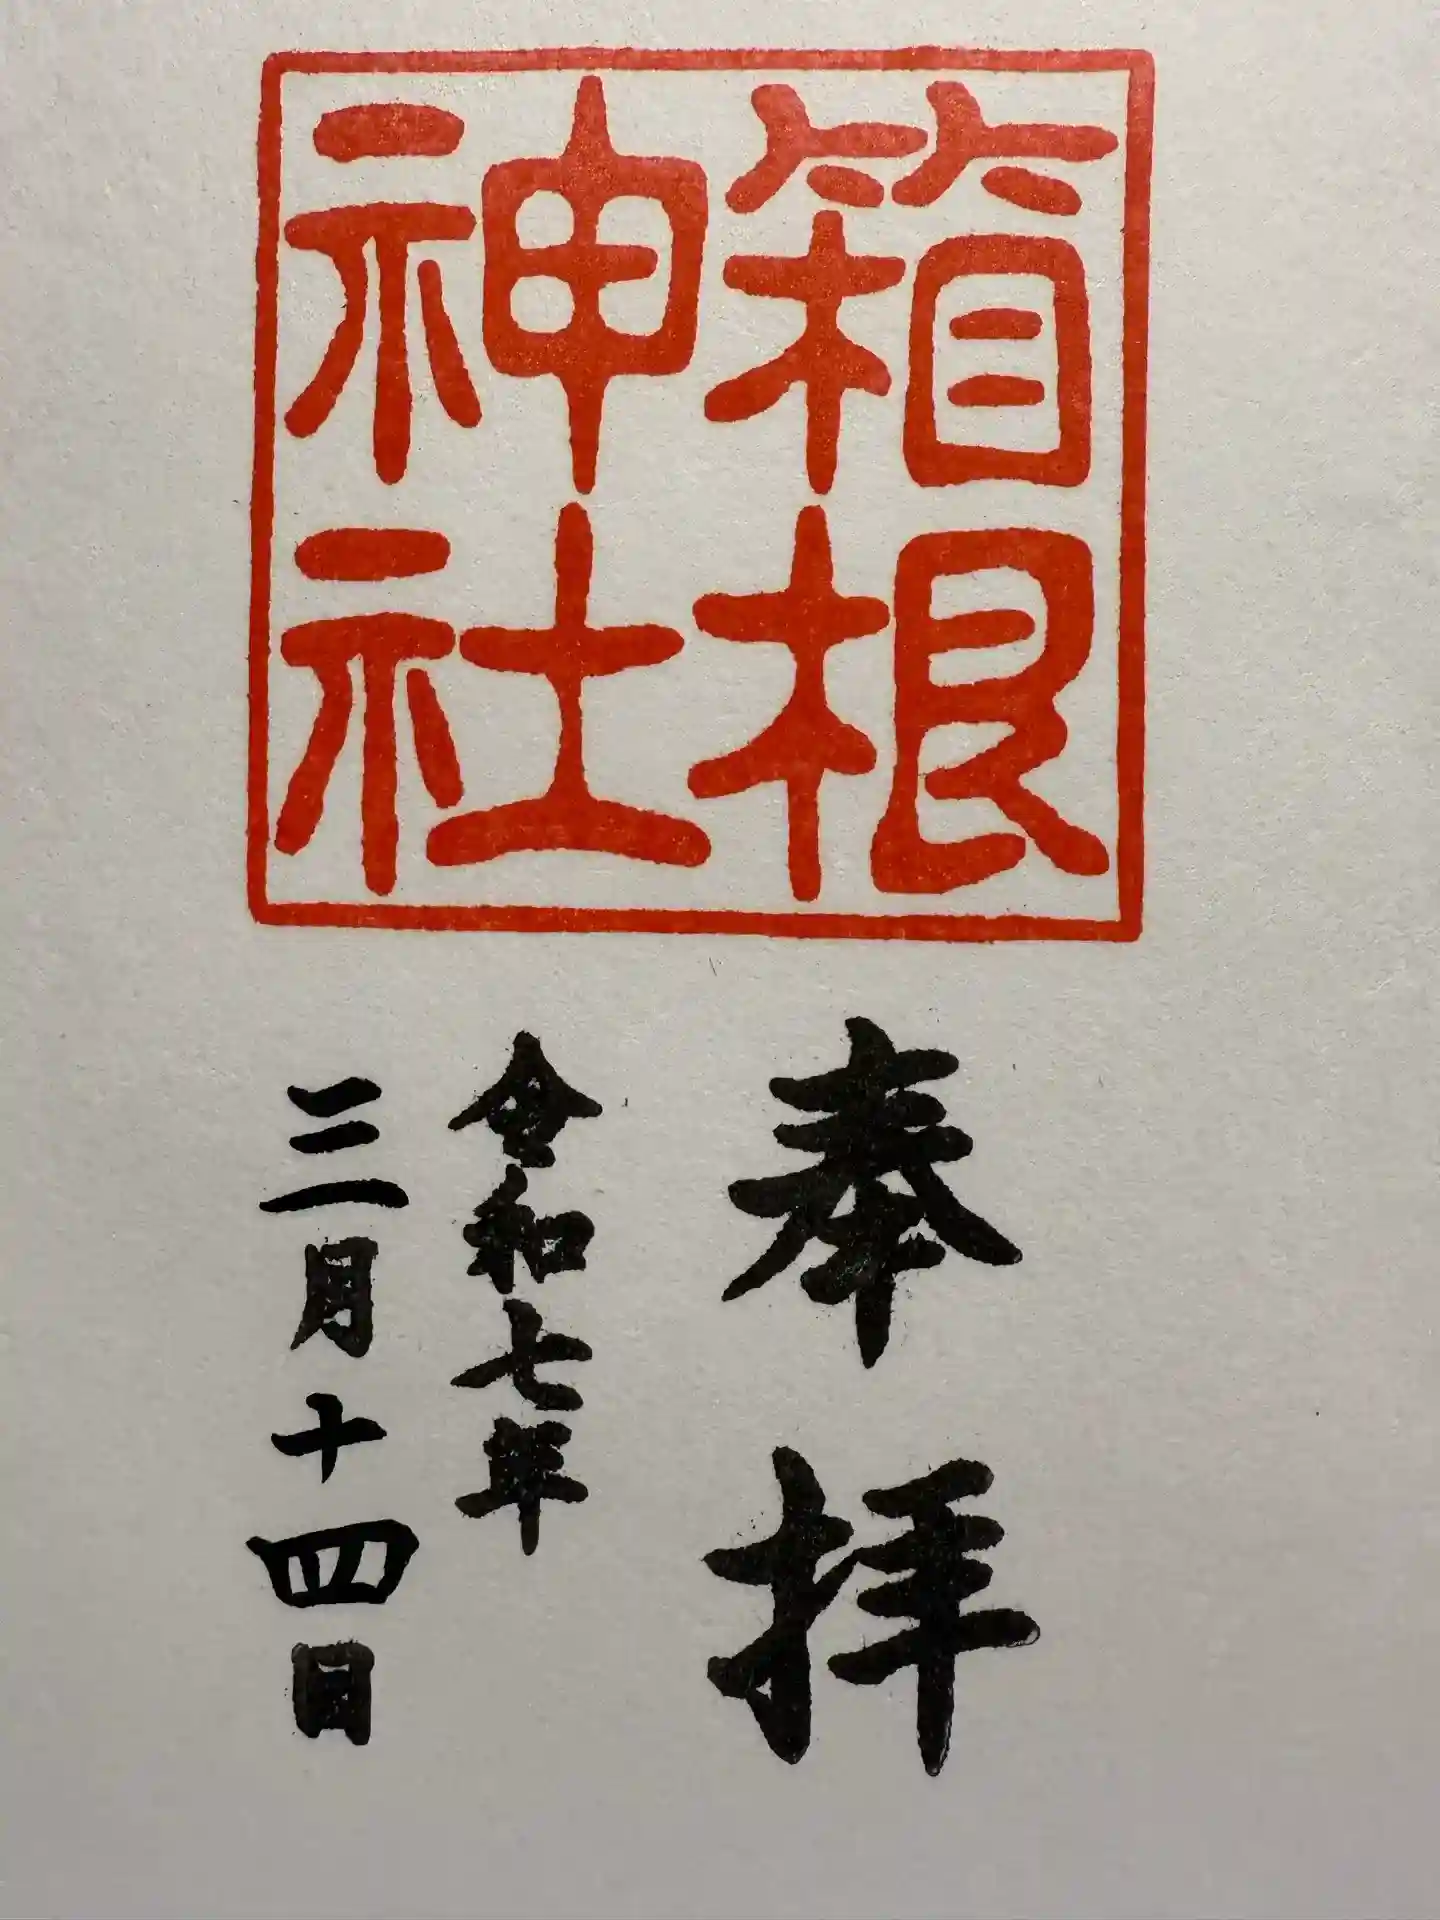 箱根
神社
奉拝
令和七年
三月十四日